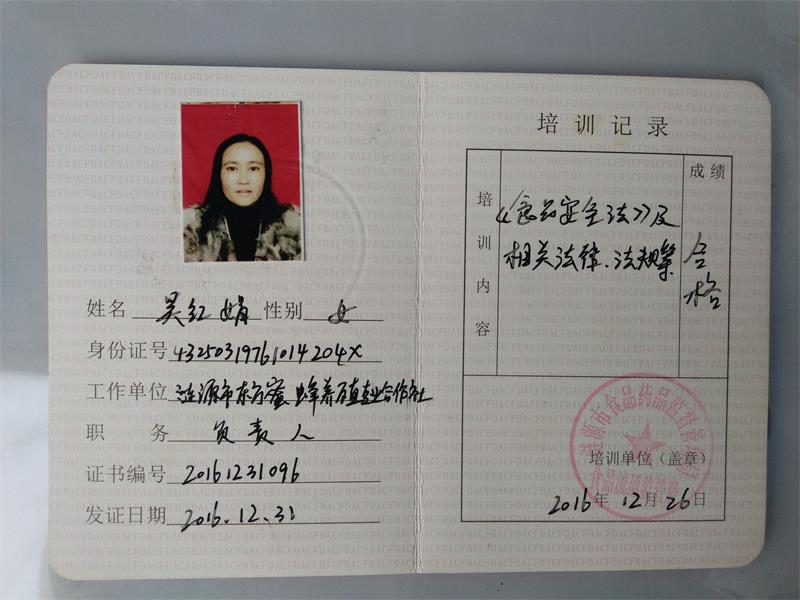 姓名 吴红娟 性别 女
身份证号 43250319761014204X
工作单位 涟源市东方蜜蜂养殖专业合作社
职务 负责人
证书编号 20161231096
发证日期 2016.12.31
培训记录
培训内容
《食品安全法》及
相关法律、法规等
成绩
合格
涟源市食品药品监督管理局
食品流通监管股
培训单位（盖章）
2016年12月26日